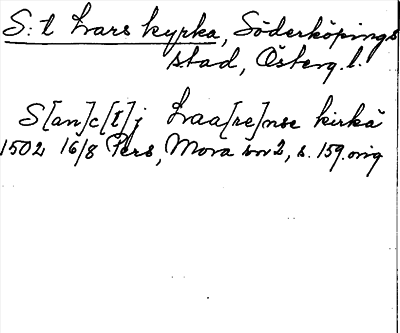 S:t Lars kyrka, Söderköpings
stad, Österg.l.
S[an]c[t]j Laa[re]nse kirkä
1502 16/8 Pers, Mora sn 2, s. 159. orig